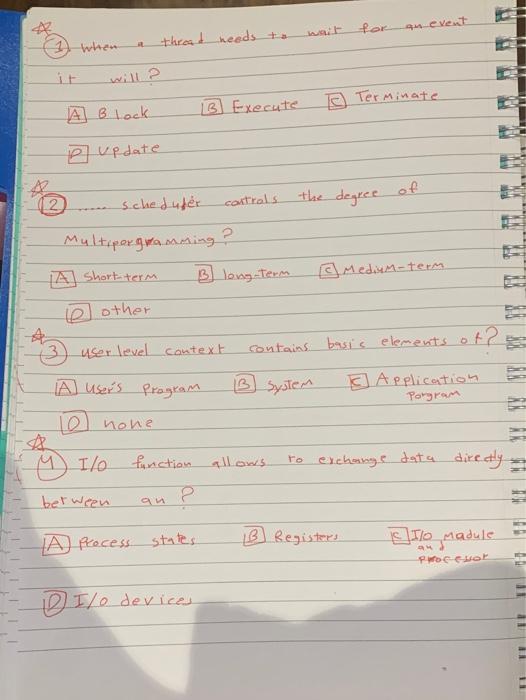 1 when a thread needs to wait for an event
it will?
A Block B Execute C Terminate
D update
2 ..... scheduler controls the degree of
Multiporgramming?
A Short-term B long-term C Medium-term
D other
3 user level context contains basic elements of?
A User's Program B System C Application
Porgram
D none
4 I/O function allows to exchange data directly
between an?
A Process states B Registers C I/O Madule
and
processor
D I/O devices